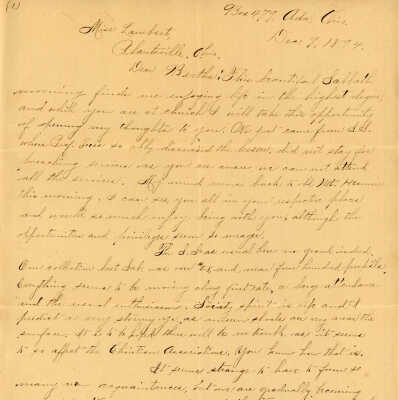 (1)
Box 477, Ada, Ohio,
Dec 9, 1894.
Miss Lambert,
Ohio.
Dear Bertha: This beautiful Sabbath
morning finds me enjoying life in the highest degree,
and while you are at church I will take this opportunity
of opening my thoughts to you. We just came from S.S.
where Prof. so ably discussed the lesson, did not stay for
preaching service as you are aware we can not attend
all the services. My mind runs back to Mt.
this morning. I can see you all in your respective places
and would so much enjoy being with you, although the
opportunities and privileges seem so meager.
The S.S. as usual here no grand indeed,
Our collection last Sab. was over and near four hundred pupils.
Everything seems to be moving along first rate, a large attendance
and the usual enthusiasm. Society spirit is up and I
predict a very year, as are near the
surface. It is to be this will not be as it seems
to so affect the Christian Associations, you know how that is.
It seems strange to have to form so
many new acquaintances, but we are gradually becoming